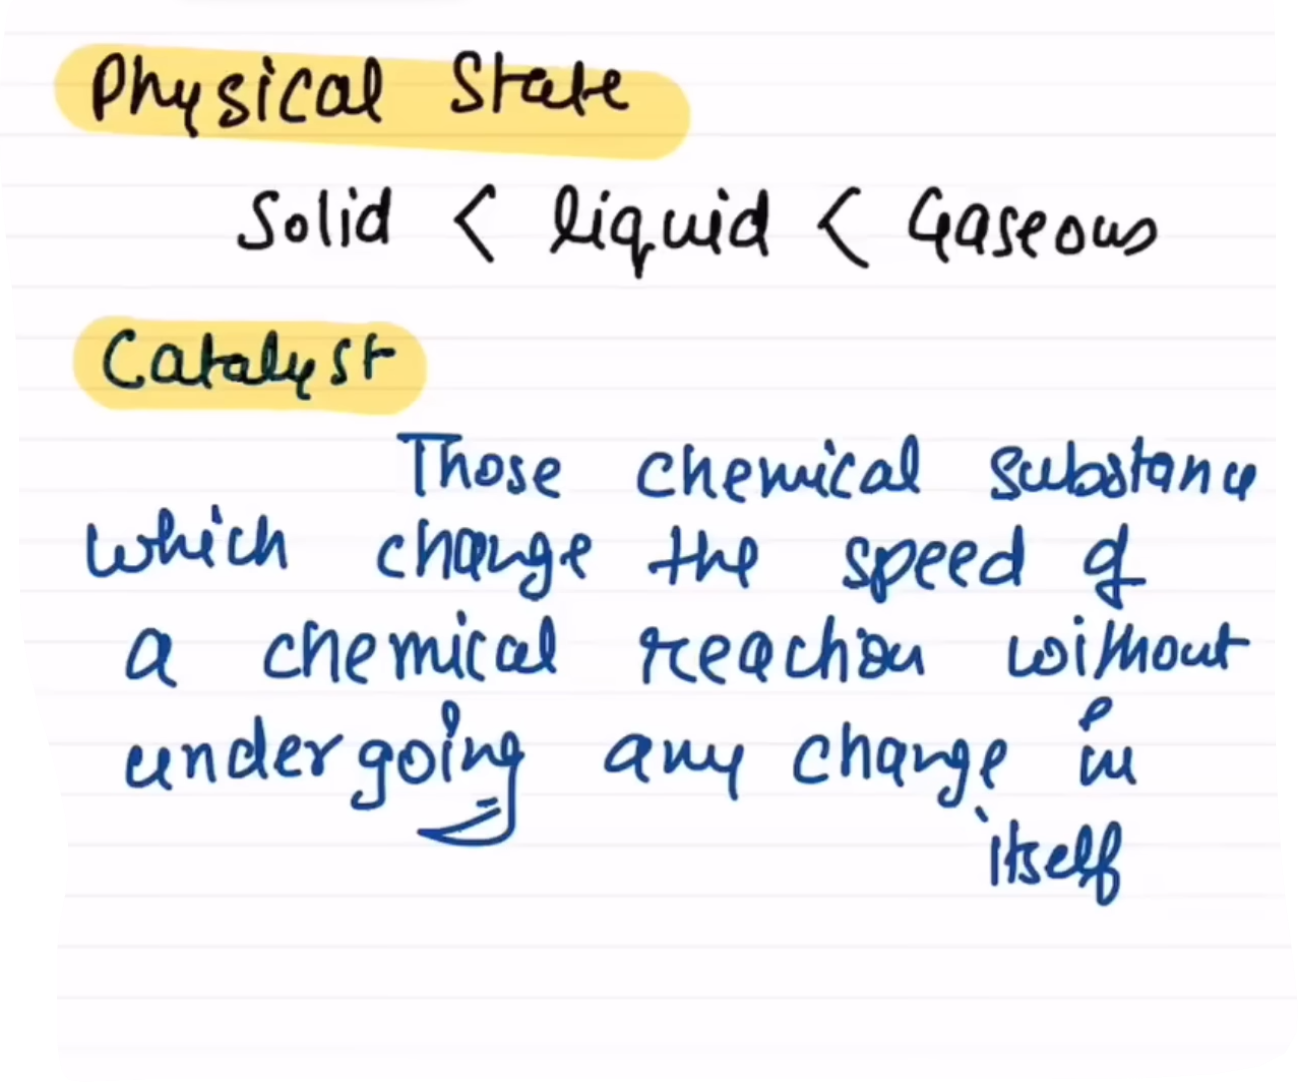 Physical State
Solid < liquid < Gaseous
Catalyst
Those chemical substance
which change the speed of
a chemical reaction without
undergoing any change in
itself